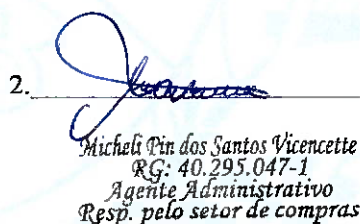 2.
Micheli Pin dos Santos Vicencette
RG: 40.295.047-1
Agente Administrativo
Resp. pelo setor de compras